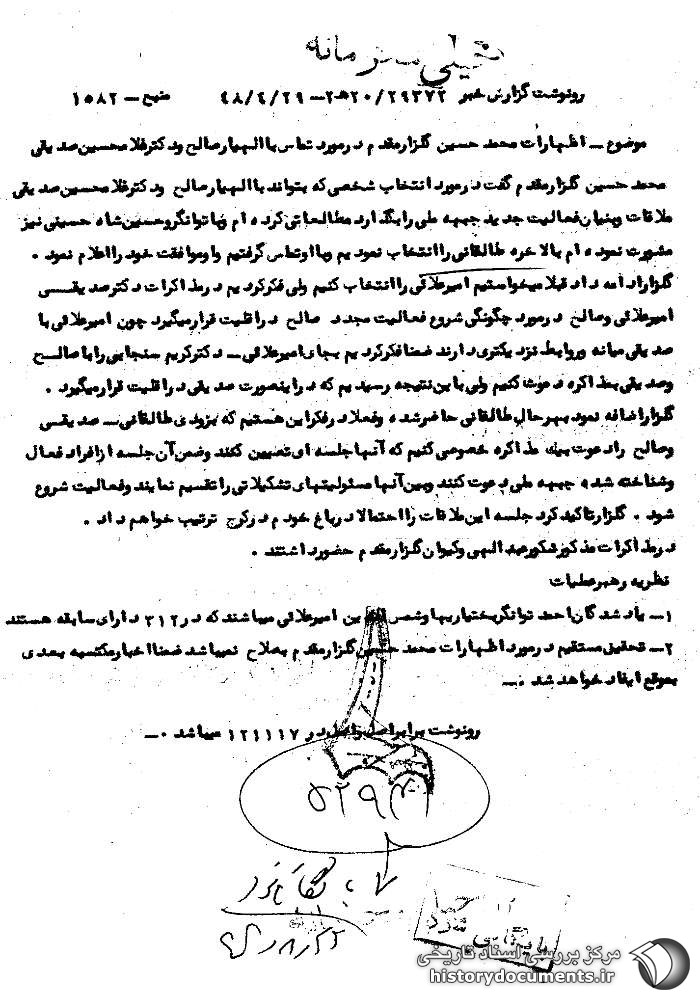 خیلی محرمانه
رونوشت گزارش خبر ۲۹۳۷۲/ ۲۰ه۲ – ۴۸/۴/۲۹ منبع – ۱۵۸۲
موضوع – اظهارات محمد حسین گلزارمقدم در مورد تماس با الهیار صالح و دکتر غلامحسین صدیقی
محمد حسین گلزارمقدم گفت در مورد انتخاب شخصی که بتواند با الهیار صالح و دکتر غلامحسین صدیقی
ملاقات و بنیان فعالیت جدید جبهه ملی را بگذارد مطالعاتی کرده ام و با توانگر و حسین شاه حسینی نیز
مشورت نموده ام بالاخره طالقانی را انتخاب نمودیم و با او تماس گرفتیم و او موافقت خود را اعلام نمود .
گلزار ادامه داد قبلا میخواستیم امیرعلائی را انتخاب کنیم ولی فکر کردیم در مذاکرات دکتر صدیقی
امیرعلائی و صالح در مورد چگونگی شروع فعالیت مجدد صالح در اقلیت قرار میگیرد چون امیرعلائی با
صدیقی میانه و روابط نزدیکتری دارند ضمنا فکر کردیم بجای امیرعلائی – دکتر کریم سنجابی را با صالح
و صدیقی بمذاکره دعوت کنیم ولی باین نتیجه رسیدیم که در اینصورت صدیقی در اقلیت قرار میگیرد .
گلزار اضافه نمود بهر حال طالقانی حاضر شده و فعلا در فکر این هستیم که بزودی طالقانی – صدیقی
و صالح را دعوت بیک مذاکره خصوصی کنیم که آنها جلسه ای تعیین کنند و ضمن آن جلسه از افراد فعال
و شناخته شده جبهه ملی دعوت کنند و بین آنها مسئولیتهای تشکیلاتی را تقسیم نمایند و فعالیت شروع
شود . گلزار تاکید کرد جلسه این ملاقات را احتمالا در باغ خودم در کرج ترتیب خواهم داد .
در مذاکرات مذکور شکور عبدالهی و کیوان گلزارمقدم حضور داشتند .
نظریه رهبر عملیات
۱– یاد شدگان احمد توانگر بختیاریها و شمس الدین امیرعلائی میباشند که در ۳۱۲ دارای سابقه هستند
۲– تحقیق مستقیم در مورد اظهارات محمد حسین گلزارمقدم بصلاح نمیباشد ضمنا اخبار مکتسبه بعدی
بموقع ایفاد خواهد شد .–
رونوشت برابر اصل و اصل در ۱۲۱۱۱۷ میباشد .–
بایگانی شود
مرکز بررسی اسناد تاریخی
historydocuments.ir